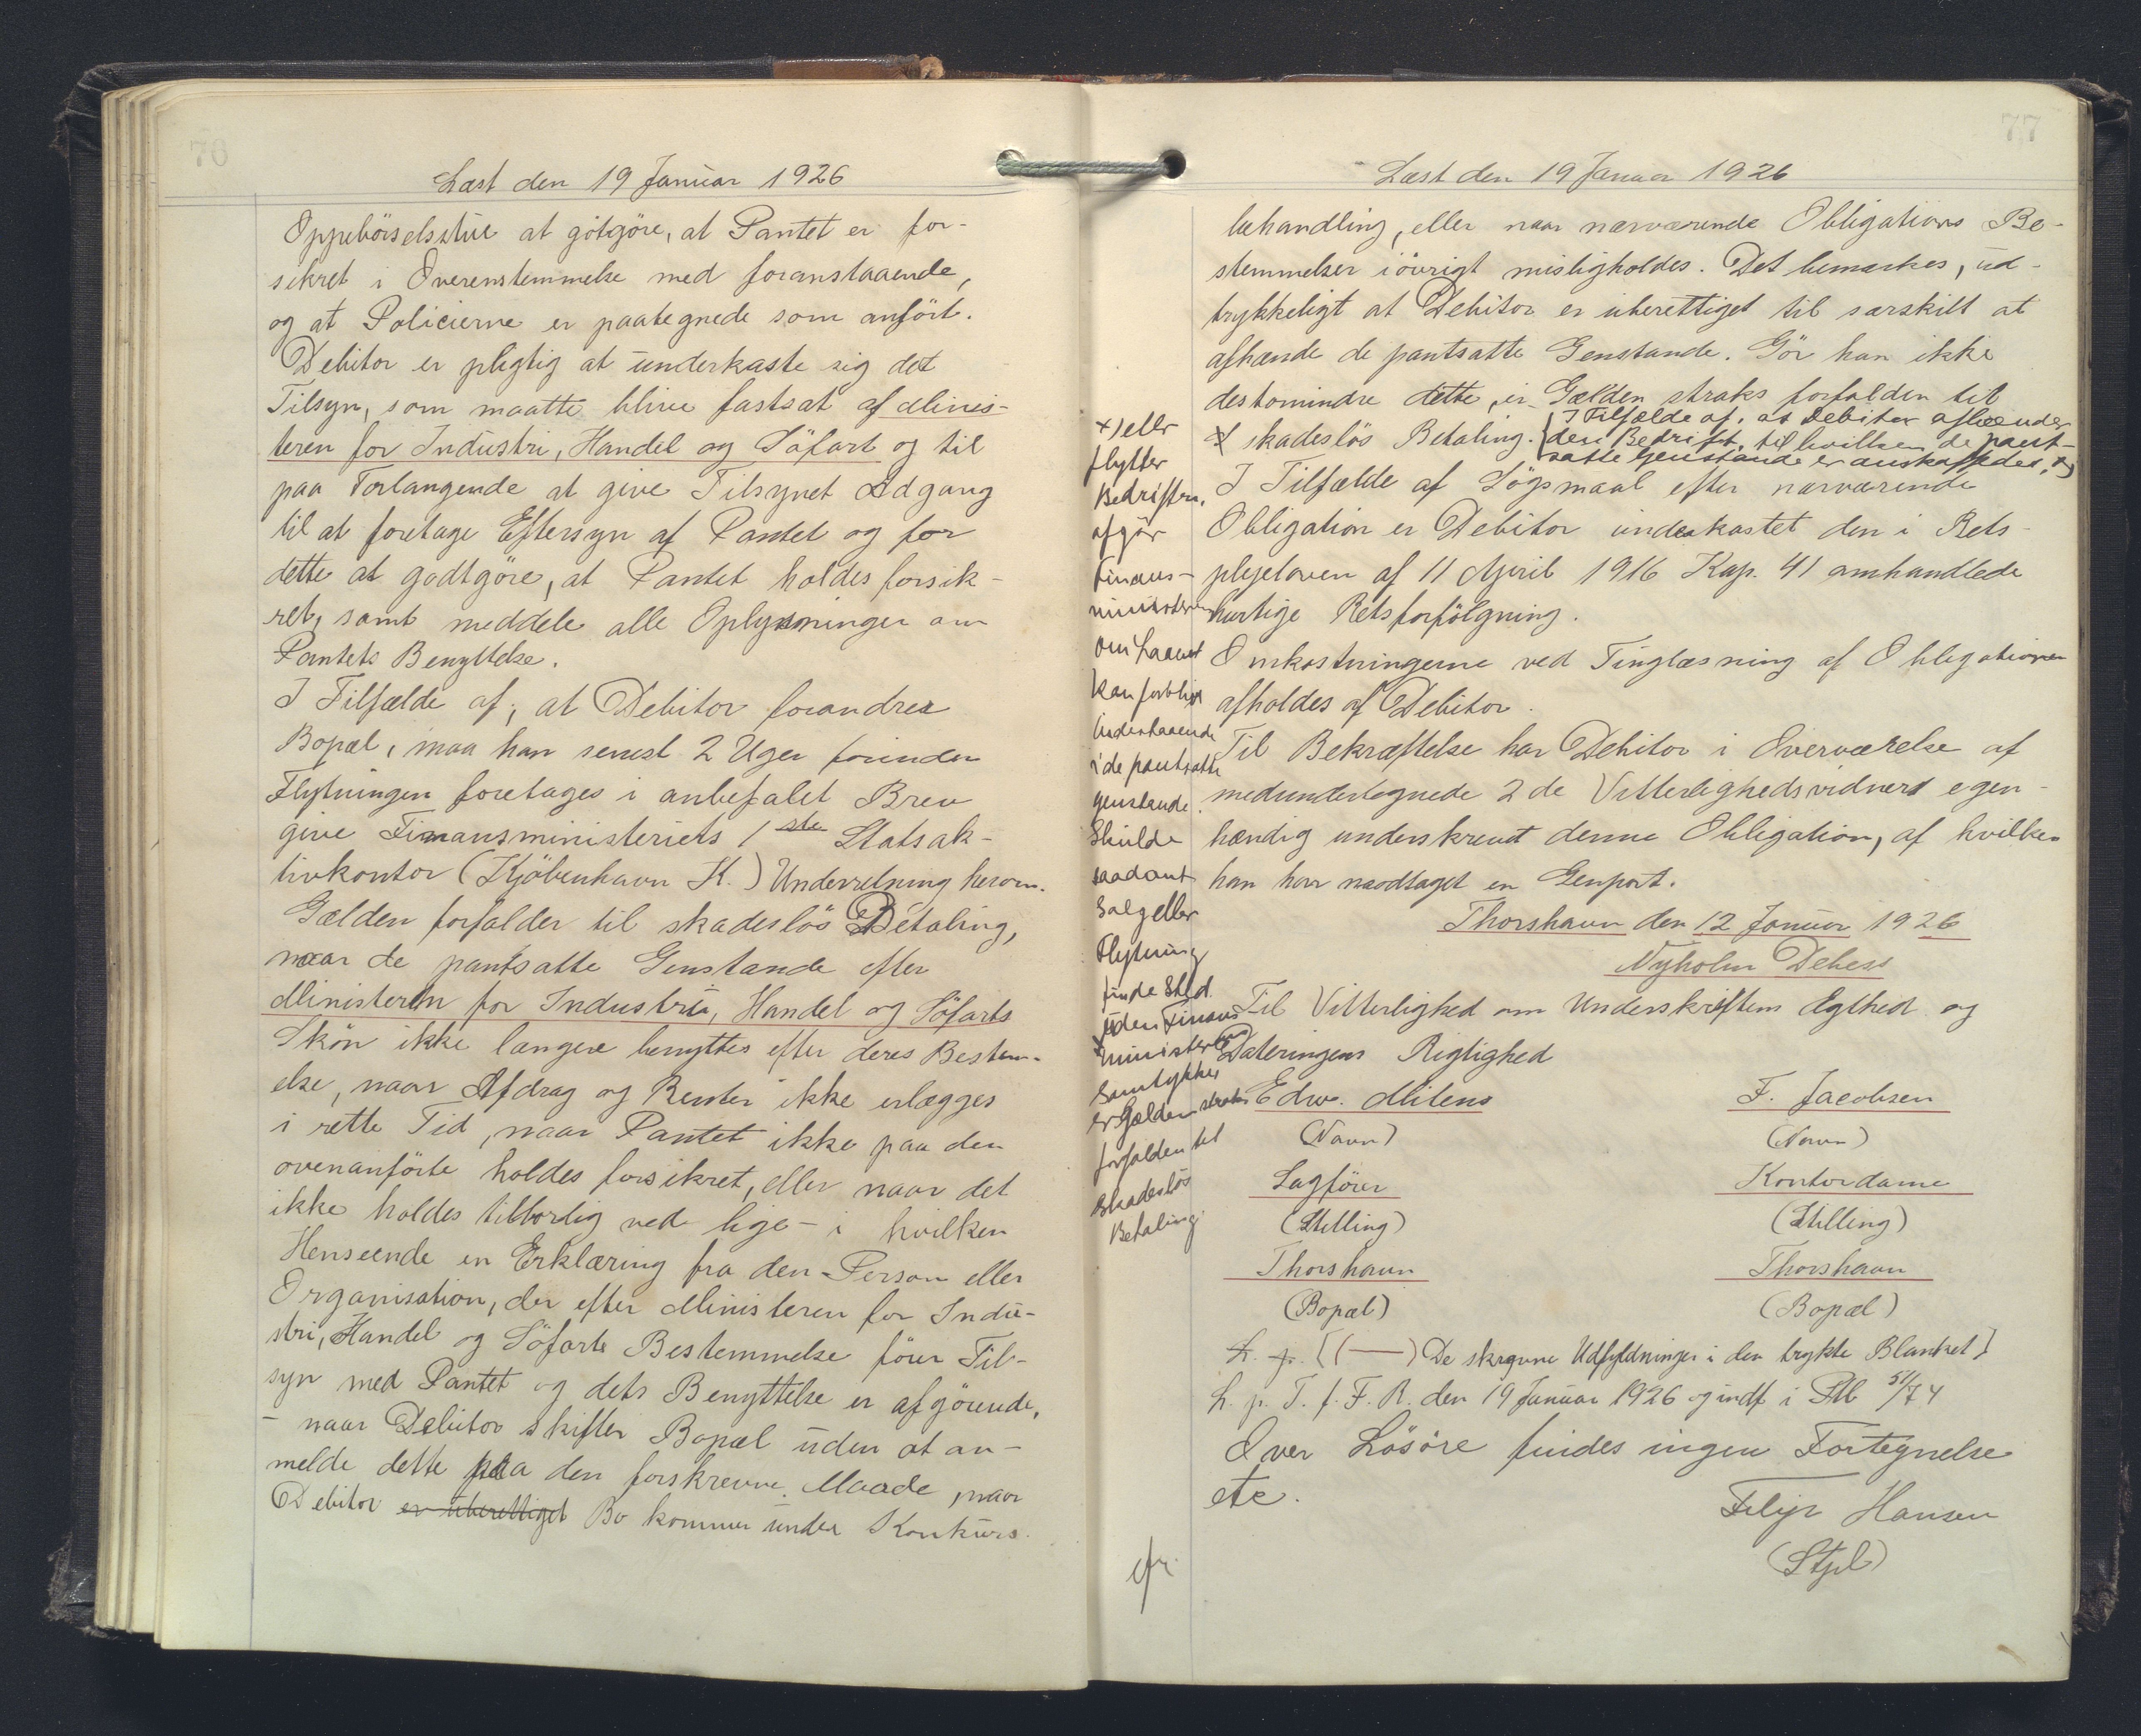 76
Læst den 19 Januar 1926
Oppebörselsstue at götgöre, at Pantet er for-
sikret i Overenstemmelse med foranstaaende,
og at Policierne er paategnede som anfört.
Debitor er pligtig at underkaste sig det
Tilsyn, som maatte blive fastsat af Minis-
teren for Industri, Handel og Söfart og til
paa Forlangende at give Tilsynet Adgang
til at foretage Eftersyn af Pantet og for
dette at godtgöre, at Pantet holdes forsik-
ret, samt meddele alle Oplysninger om
Pantets Benyttelse.
I Tilfælde af, at Debitor forandrer
Bopæl, maa han senest 2 Uger forinden
Flytningen foretages i anbefalet Brev
give Finansministeriets 1ste Statsak-
tivkontor (Kjöbenhavn K.) Underretning herom.
Gælden forfalder til skadeslös Betaling,
naar de pantsatte Genstande efter
Ministeren for Industri, Handel og Söfarts
Skön ikke længere benyttes efter deres Bestem-
else, naar Afdrag og Renter ikke erlægges
i rette Tid, naar Pantet ikke paa den
ovenanförte holdes forsikret, eller naar det
ikke holdes tilbörlig ved lige - i hvilken
Henseende en Erklæring fra den Person eller
Organisation, der efter Ministeren for Indu-
stri, Handel og Söfarts Bestemmelse förer Til-
syn med Pantet og dets Benyttelse er afgörende,
- naar Debitor skifter Bopæl uden at an-
melde dette paa den forskrevne Maade, naar
Debitor er uberettiget Bo kommer under Konkurs-
77
Læst den 19 Januar 1926
behandling, eller naar nærværende Obligations Be-
stemmelser iövrigt misligholdes. Det bemærkes, ud-
trykkeligt at Debitor er uberettiget til særskilt at
afhænde de pantsatte Genstande. Gör han ikke
destomindre dette, er Gælden straks forfalden til
skadeslös Betaling. I Tilfælde af, at Debitor afhænder
den Bedrift, til hvilken de pant-
satte Genstande er anskaffedes, x)
I Tilfælde af Sögsmaal efter nærværende
Obligation er Debitor underkastet den i Rets-
plejeloven af 11 April 1916 Kap. 41 omhandlede
hurtige Retsforfölgning.
Omkostningerne ved Tinglæsning af Obligationen
afholdes af Debitor.
Til Bekræftelse har Debitor i Overværelse af
medundertegnede 2 de Vitterlighedsvidner egen-
hændig underskrevet denne Obligation, af hvilken
han har modtaget en Genpart.
Thorshavn den 12 Januar 1926
Nyholm Debess
Til Vitterlighed om Underskriftens Ægthed og
Dateringens Rigtighed
Edw. Mitens F. Jacobsen
(Navn) (Navn)
Sagförer Kontordame
(Stilling) (Stilling)
Thorshavn Thorshavn
(Bopæl) (Bopæl)
L. p. [(—) De skrevne Udfyldninger i den trykte Blanket]
L. p. T. f. F. R. den 19 Januar 1926 og indf i Ptb 51/74
Over Lösöre findes ingen Fortegnelse
etc.
Filip Hansen
(Stpl)
x) eller
flytter
Bedriften,
afgör
Finans-
ministeren
om Laanet
kan forblive
indestaaende
i de pantsatte
genstande.
Skulde
saadant
Salg eller
Flytning
finde Sted
uden Finans
ministeren
Samtykke,
er Gælden straks
forfalden til
skadeslös
Betaling.